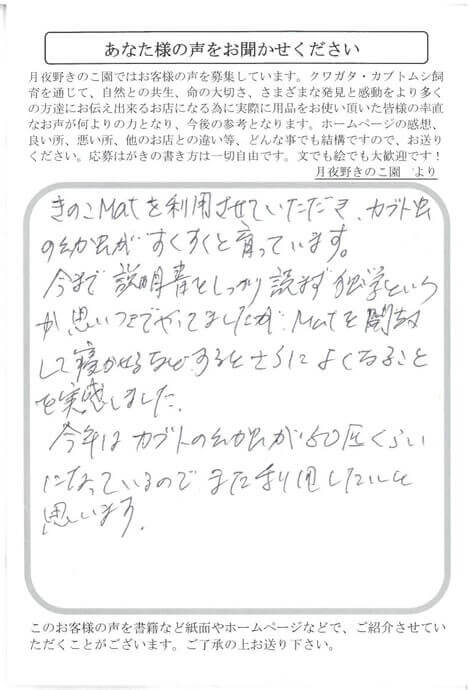 あなた様の声をお聞かせください
月夜野きのこ園ではお客様の声を募集しています。クワガタ・カブトムシ飼
育を通じて、自然との共生、命の大切さ、さまざまな発見と感動をより多く
の方達にお伝え出来るお店になる為に実際に用品をお使い頂いた皆様の率直
なお声が何よりの力となり、今後の参考となります。ホームページの感想、
良い所、悪い所、他のお店との違い等、どんな事でも結構ですので、お送り
ください。応募はがきの書き方は一切自由です。文でも絵でも大歓迎です!
月夜野きのこ園 より
きのこMatを利用させていただき、カブト虫
の幼虫がすくすくと育っています。
今まで説明書をしっかり読まず独学という
か思いつきでやってましたが、Matを開放
して寝かせるなどするとさらによくなること
を実感しました。
今年はカブトの幼虫が150匹くらい
になっているのでまた利用したいと
思います。
このお客様の声を書籍など紙面やホームページなどで、ご紹介させてい
ただくことがございます。ご了承の上お送り下さい。